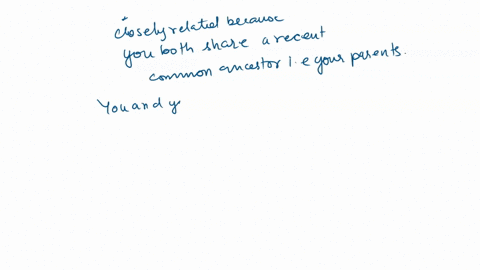 closely related because
you both share a recent
common ancestor i.e your parents.
You and y